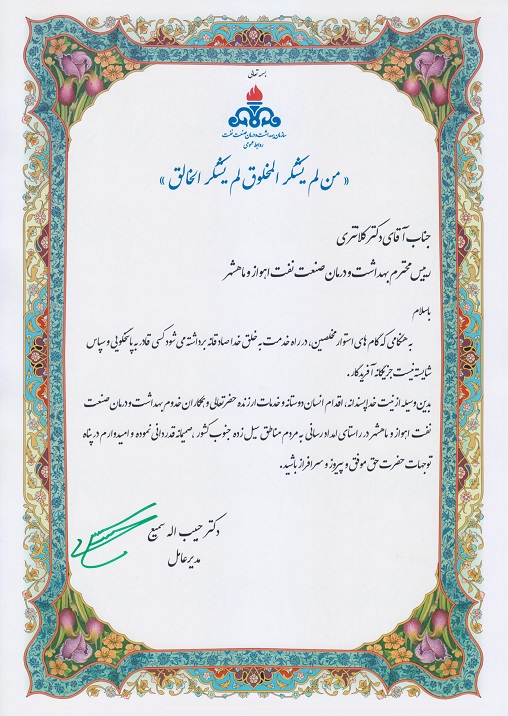 بسمه تعالی
سازمان بهداشت و درمان صنعت نفت
روابط عمومی
« من لم یشکر المخلوق لم یشکر الخالق »
جناب آقای دکتر کلانتری
رییس محترم بهداشت و درمان صنعت نفت اهواز و ماهشهر
باسلام
به هنگامی که گام های استوار مخلصین، در راه خدمت به خلق خدا صادقانه برداشته می شود کسی قادر به پاسخگویی و سپاس
شایسته نیست جز یگانه آفریدگار.
بدین وسیله از نیت خداپسندانه، اقدام انسان دوستانه و خدمات ارزنده حضرتعالی و همکاران خدوم بهداشت و درمان صنعت
نفت اهواز و ماهشهر در راستای امداد رسانی به مردم مناطق سیل زده جنوب کشور ، صمیمانه قدردانی نموده و امیدوارم در پناه
توجهات حضرت حق موفق و پیروز و سرافراز باشید.
دکتر حبیب اله سمیع
مدیرعامل